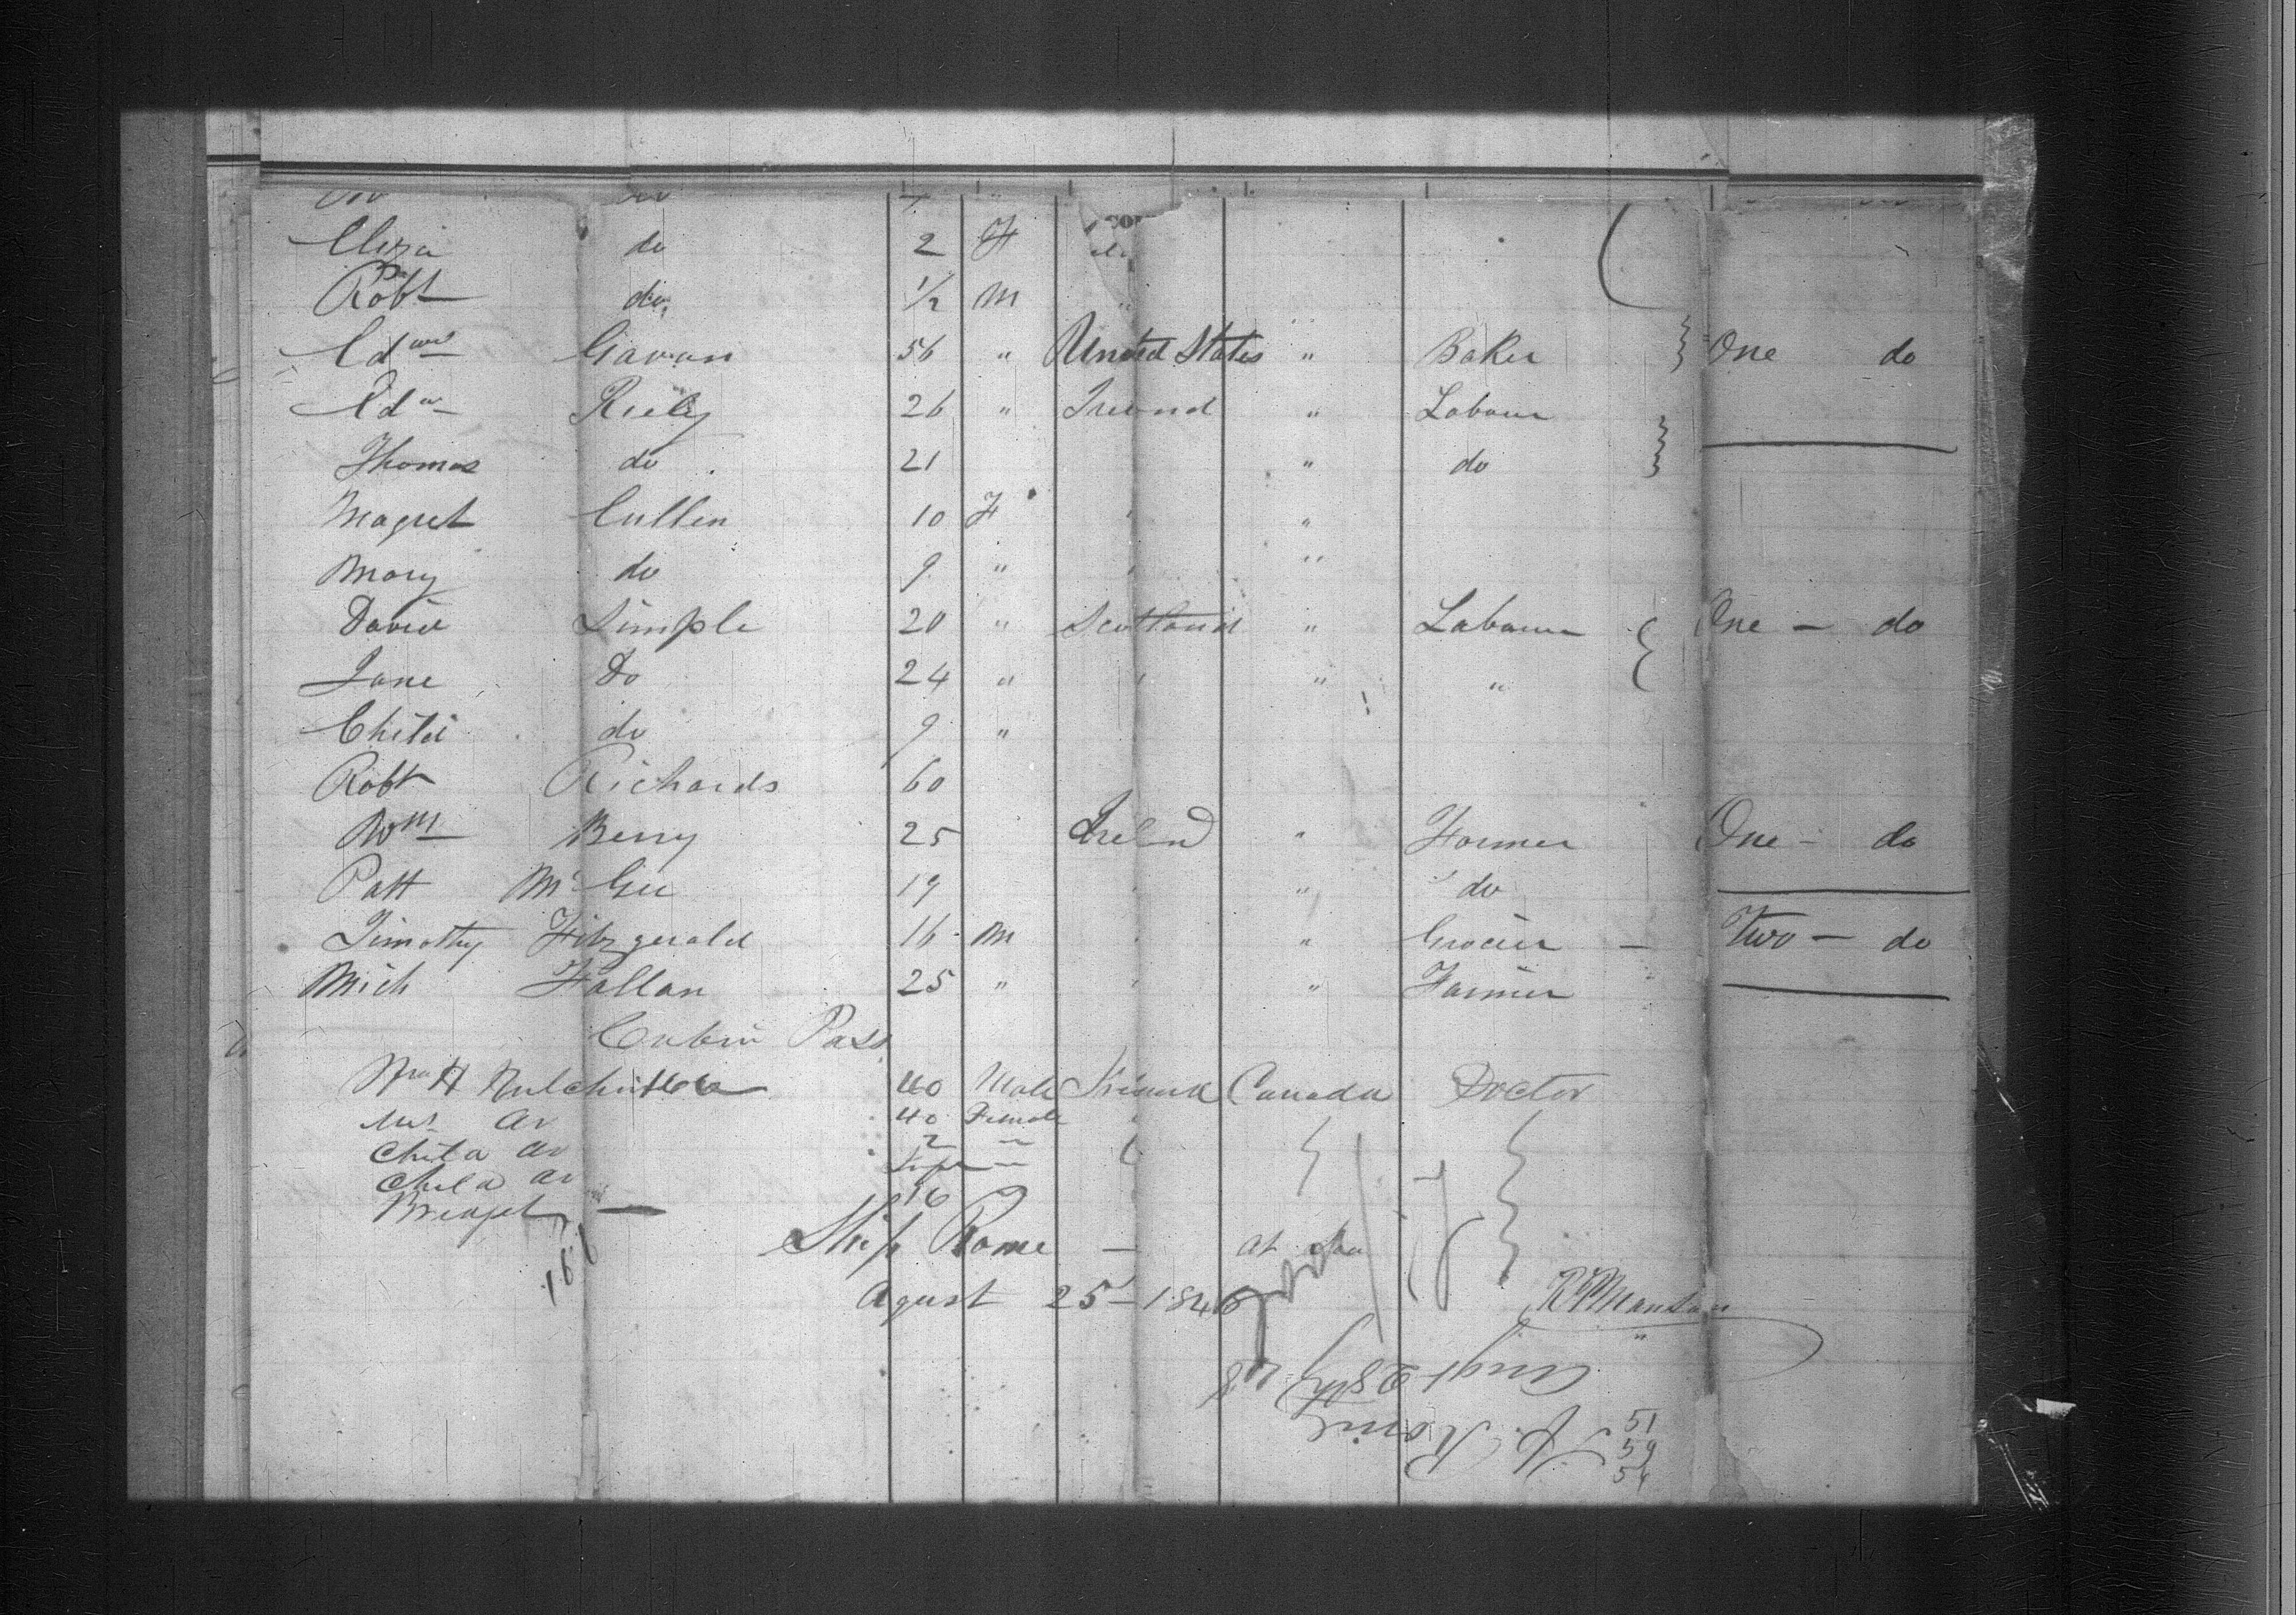 COM
Eliza do 2 F
Robt do 1/2 M
Edwd Gavan 56 " United States " Baker One do
Edw Riely 26 " Ireland " Labour
Thomas do 21 " do
Magret Cullen 10 F "
Mary do 9 " "
David Simple 20 " Scotland " Labour One — do
Jane Do 24 " " " "
Child do 9 "
Robt Richards 60
Wm Berry 25 Ireland " Farmer One — do
Patt McGee 19 " do
Timothy Fitzgerald 16 M " Grocier — Two — do
Mich Fallan 25 " " Farmer
Cabin Pass
40 Male Canada Doctor
40 Female
Child 2
Child
Bridget — 16
Ship Rome — at Sea
Agust 25 — 1846
161
Augt 28th
S. Rome
51
59
54